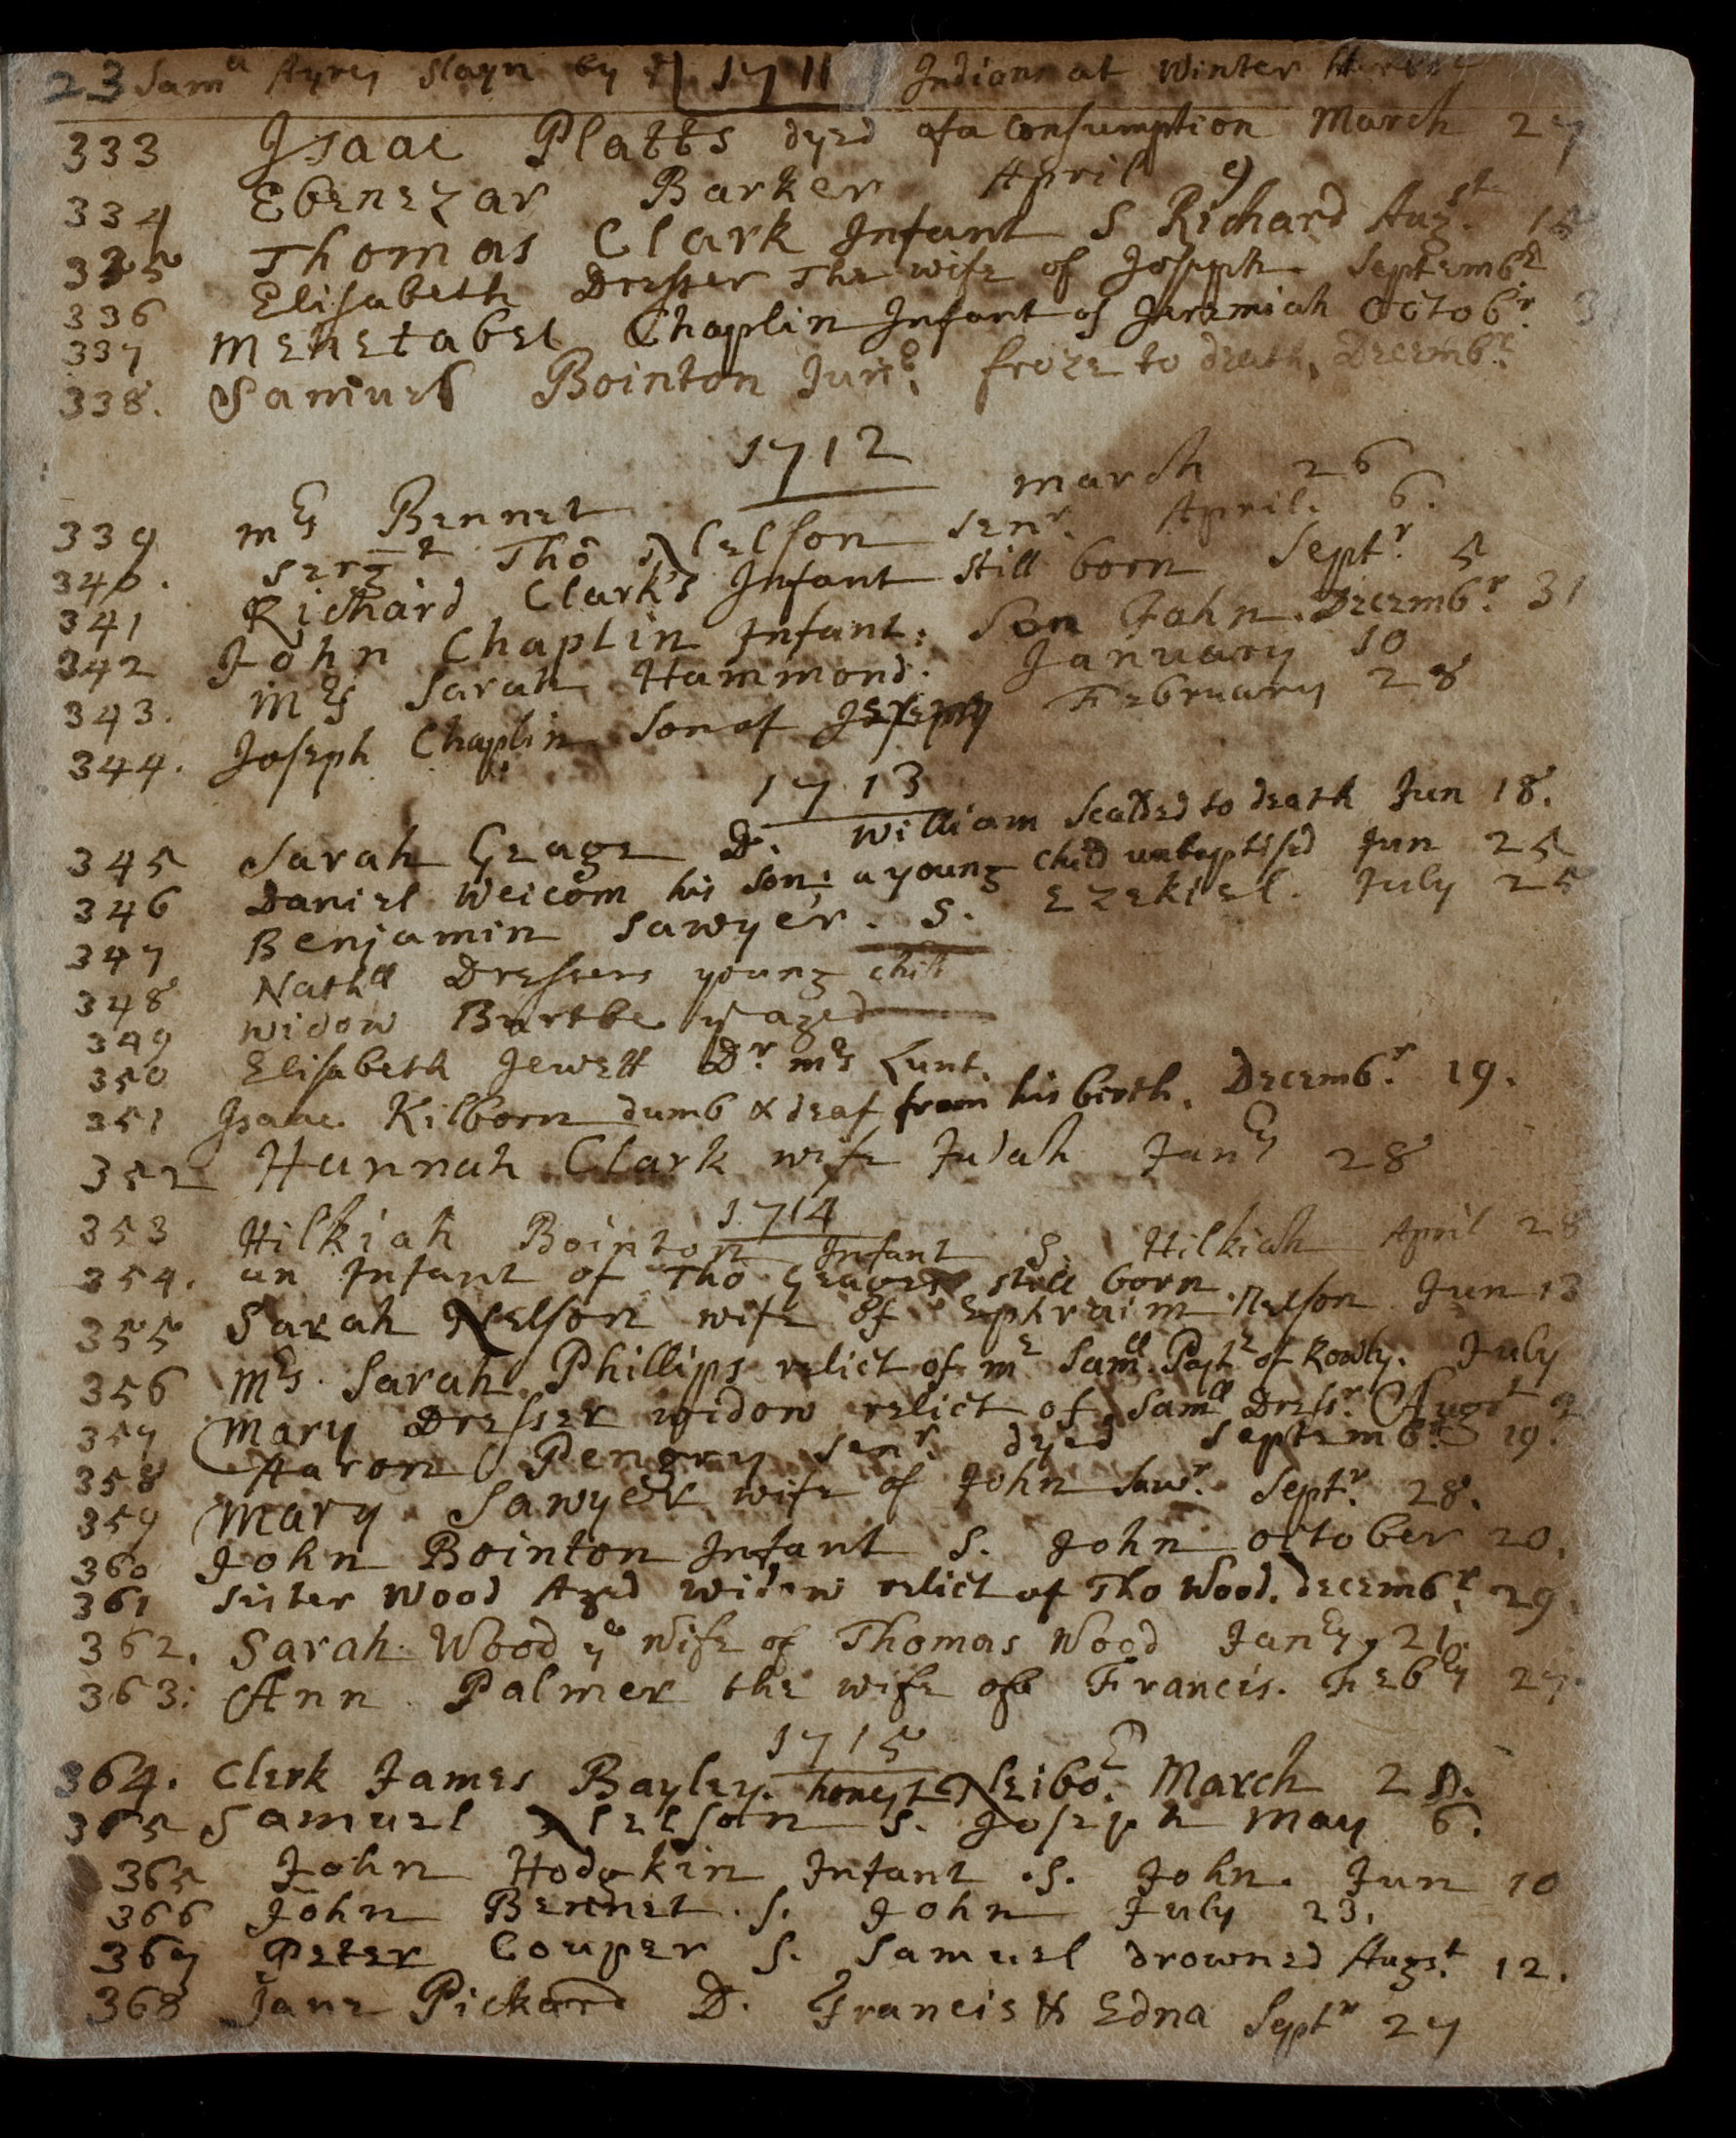 23 Sam^ll Ayrey slayn by y^e 1711 Indians at Winter
333 Isaac Platts dyed of a Consumption March 27
334 Ebenezar Barker April 9
335 Thomas Clark Infant S Richard Aug^st. 15
336 Elisabeth Dresser The wife of Joseph Septemb^r
337 Mehetabel Chaplin Infant of Jeremiah Octob^r. 3
338. Samuel Bointon Jun^r. froze to death, Decemb^r.
1712
339 m^rs Bennet march 26
340. Serg^t Tho Nelson Sen^r. April. 6.
341 Richard Clark's Infant still born Sept^r. 5
342 John Chaplin Infant. Son John. Decemb^r. 31
343. M^rs Sarah Hammond. January 10
344. Joseph Chaplin Son of Jeremy February 28
1713
345 Sarah Geage D. William Scalded to death Jun 18.
346 Daniel Weicom his Son: a young Child unbaptised Jun 25
347 Benjamin Sawyer. S. Ezekiel. July 25
348 Nath^ll Dressers young child
349 widow Burtbe y^t aged
350 Elisabeth Jewett D^r. m^rs Lunt.
351 Isaac Kilborn dumb & deaf from his birth. Decemb^r. 19.
352 Hannah Clark wife Judah Jan^ry 28
1714
353 Hilkiah Bointon Infant S. Hilkiah April 28
354. an Infant of Tho Geages still born
355 Sarah Nelson wife of Ephraim Nelson Jun 13
356 M^rs. Sarah Phillips relict of m^r Sam^ll. Past^r of Rowly. July
357 Mary Dresser widow relict of Sam^ll Dress^r. August
358 Aaron Pengry Sen^r. dyed Septemb^r. 19.
359 Mary Sawyer wife of John Saw^r. Sept^r. 28.
360 John Bointon Infant S. John october 20.
361 Sister Wood Aged widow relict of Tho Wood. decemb^r. 29.
362. Sarah Wood y^e Wife of Thomas Wood Jan^ry, 21.
363: Ann Palmer the wife of Francis. Feb^ry 27.
1715
364. Clerk James Bayley. honest Neibo^r. March 2
365 Samuel Nelson S. Joseph May 6.
365 John Hodgkin Infant. S. John. Jun 10
366 John Bennet. S. John July 23.
367 Peter Couper S. Samuel drowned Augs^t. 12.
368 Jane Pickard D. Francis & Edna Sept^r 27